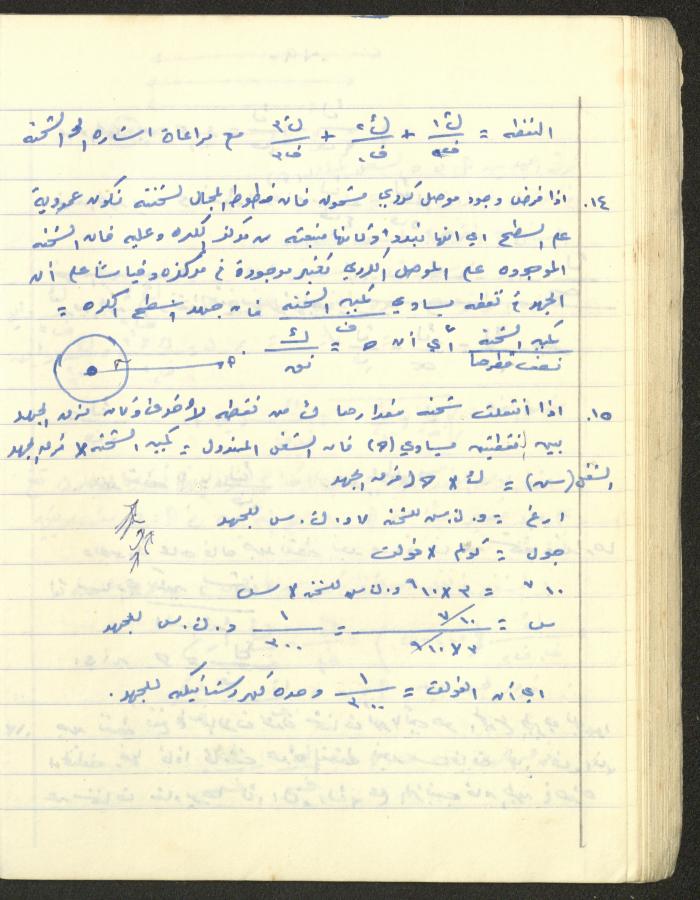 النقطه = ك١/ف١ + ك٢/ف٢ + ك٣/ف٣ مع مراعاة اشارة الشحنة
١٤. اذا فرض وجود موصل كروي مشحون فان خطوط المجال لشحنته تكون عمودية
على السطح اي انها تبدو وكأنها منبعثه من مركز الكره وعليه فان الشحنه
الموجوده على الموصل الكروي تعتبر موجودة في مركزه وقياسا على أن
الجهد في نقطه يساوي كمية الشحنه / ف فان جهد سطح الكره =
كمية الشحنة / نصف قطرها أي أن ح = ك / نق
١٥. اذا انتقلت شحنه مقدارها ك من نقطه لأخرى وكان فرق الجهد
بين نقطتين يساوي (ح) فان الشغل المبذول = كمية الشحنه × فرق الجهد
الشغل (س) = ك × ح فرق الجهد
ارغ = و. ك. س للشحنه × و. ك. س للجهد
جول = كولم × فولت
١٠ ٧ = ٣ × ١٠ ٩ و. ك. س للشحنه × س
س = ١٠ ٧ / ٣ × ١٠ ٩ = ١ / ٣٠٠ و. ك. س للجهد
اي أن الفولت = ١ / ٣٠٠ وحده كهروستاتيكيه للجهد.